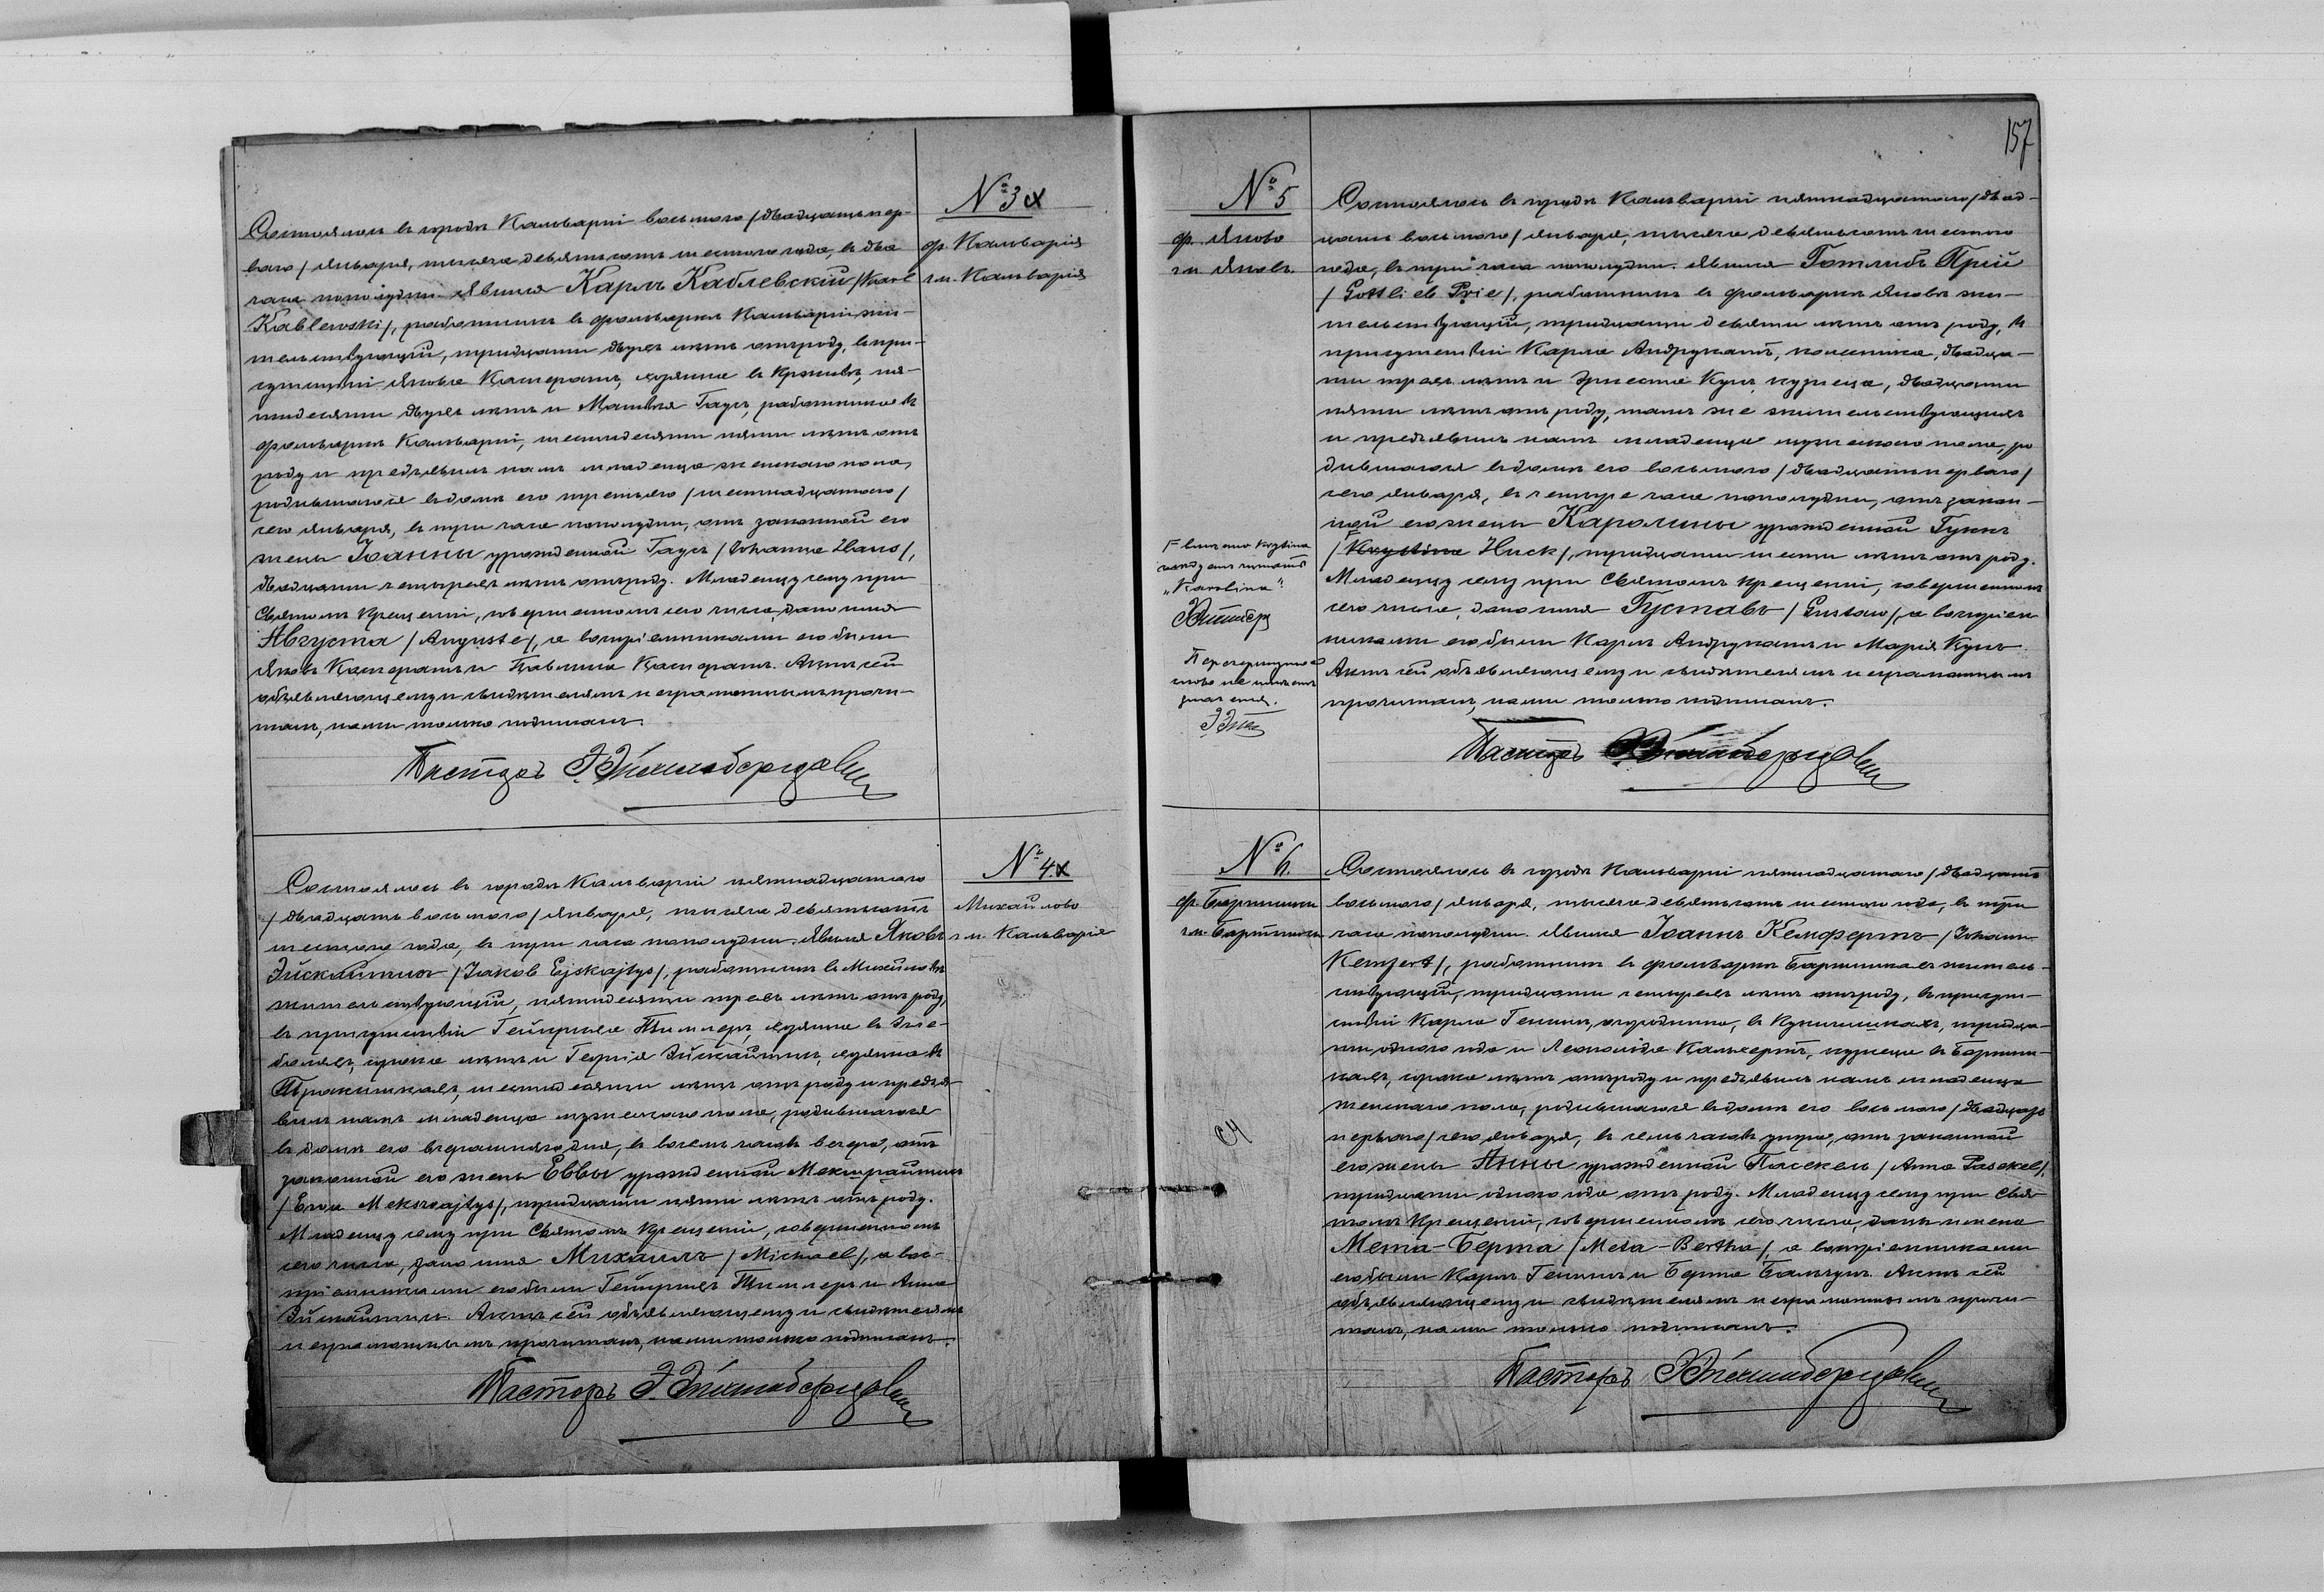 № 3
ф. Кальварія
гм. Кальварія
Состоялось въ городѣ Кальваріи восьмого /двадцать пер-
ваго/ января, тысяча девятьсотъ шестого года, въ два
часа пополудни. Явился Карлъ Каблевскій /Karl
Kablewski/, работникъ въ фольваркѣ Кальваріи жи-
тельствующій, тридцати двухъ лѣтъ отъ роду, въ при-
сутствіи Якова Кастератъ, хозяина въ, пя-
тидесяти двухъ лѣтъ и Матвѣя Гаусъ, работника въ
фольваркѣ Кальваріи, шестидесяти пяти лѣтъ отъ
роду и предъявилъ намъ младенца женскаго пола,
родившагося въ домѣ его третьяго /шестнадцатаго/
сего января, въ три часа пополудни, отъ законной его
жены Іоанны урожденной Гаусъ /Johanna Haus/,
двадцати четырехъ лѣтъ отъ роду. Младенцу сему при
Святомъ Крещеніи, совершенномъ сего числа, дано имя
Августа /Auguste/, а воспріемниками его были
Яковъ Кастератъ и Павлина Кастератъ. Актъ сей
объявляющему и свидѣтелямъ неграмотнымъ прочи-
танъ, нами только подписанъ.
Пасторъ
№ 4
Михайлово
гм. Кальварія
Состоялось въ городѣ Кальваріи пятнадцатаго
/двадцать восьмого/ января, тысяча девятьсотъ
шестого года, въ три часа пополудни. Явился Яковъ
Эйскайтисъ /Jakob Ejskajtys/, работникъ въ Михайловѣ
жительствующій, пятидесяти трехъ лѣтъ отъ роду,
въ присутствіи Гейнриха Тиллеръ, хозяина въ
сорока лѣтъ и Георгія Эйскайтисъ, хозяина въ
шестидесяти лѣтъ отъ роду и предъя-
вилъ намъ младенца мужескаго пола, родившагося
въ домѣ его вчерашняго дня, въ восемь часовъ вечера, отъ
законной его жены Еввы урожденной Мекшрайтисъ
/Ewa Mekszrajtys/, тридцати пяти лѣтъ отъ роду.
Младенцу сему при Святомъ Крещеніи, совершенномъ
сего числа, дано имя Михаилъ /Michael/, а вос-
пріемниками его были Гейнрихъ Тиллеръ и Анна
Эйскайтисъ. Актъ сей объявляющему и свидѣтелямъ
неграмотнымъ прочитанъ, нами только подписанъ.
Пасторъ
157
№ 5
ф. Яново
гм. Яновъ.
Состоялось въ городѣ Кальваріи пятнадцатаго /двад-
цать восьмого/ января, тысяча девятьсотъ шестого
года, въ три часа пополудни. Явился Готлибъ Прей
/Gottlieb Prie/, работникъ въ фольваркѣ Яновѣ жи-
тельствующій, тридцати девяти лѣтъ отъ роду, въ
присутствіи Карла Андрукатъ, колесника, двадца-
ти трехъ лѣтъ и Эрнеста Кунъ, кузнеца, двадцати
пяти лѣтъ отъ роду, тамъ же жительствующихъ
и предъявилъ намъ младенца мужескаго пола, ро-
дившагося въ домѣ его восьмого /двадцать перваго/
сего января, въ четыре часа пополудни, отъ закон-
ной его жены Каролины урожденной Гукъ
/Krystina Huck/, тридцати шести лѣтъ отъ роду.
Младенцу сему при Святомъ Крещеніи, совершенномъ
сего числа, дано имя Густавъ /Gustaw/, а воспріем-
никами его были Карлъ Андрукатъ и Марія Кунъ.
Актъ сей объявляющему и свидѣтелямъ неграмотнымъ
прочитанъ, нами только подписанъ.
Вмѣсто Krystina
слѣдуетъ читать
„Karolina“.
Перечеркнутое
слово не имѣетъ
значенія.
Пасторъ
№ 6.
ф. Бартники
гм. Бартники
Состоялось въ городѣ Кальваріи пятнадцатаго /двадцать
восьмого/ января, тысяча девятьсотъ шестого года, въ три
часа пополудни. Явился Іоаннъ Кемфертъ /Johann
Kempfert/, работникъ въ фольваркѣ Бартникахъ житель-
ствующій, тридцати четырехъ лѣтъ отъ роду, въ присут-
ствіи Карла Генигъ, огородника, въ тридца-
ти одного года и Леопольда Калькертъ, кузнеца въ Бартни-
кахъ, сорока лѣтъ отъ роду и предъявилъ намъ младенца
женскаго пола, родившагося въ домѣ его восьмого /двадцать
перваго/ сего января, въ семь часовъ утра, отъ законной
его жены Анны урожденной Пасекель /Anna Pasekel/,
тридцати одного года отъ роду. Младенцу сему при Свя-
томъ Крещеніи, совершенномъ сего числа, даны имена
Мета-Берта /Meta-Bertha/, а воспріемниками
его были Карлъ Генигъ и Берта Бальчунъ. Актъ сей
объявляющему и свидѣтелямъ неграмотнымъ прочи-
танъ, нами только подписанъ.
Пасторъ